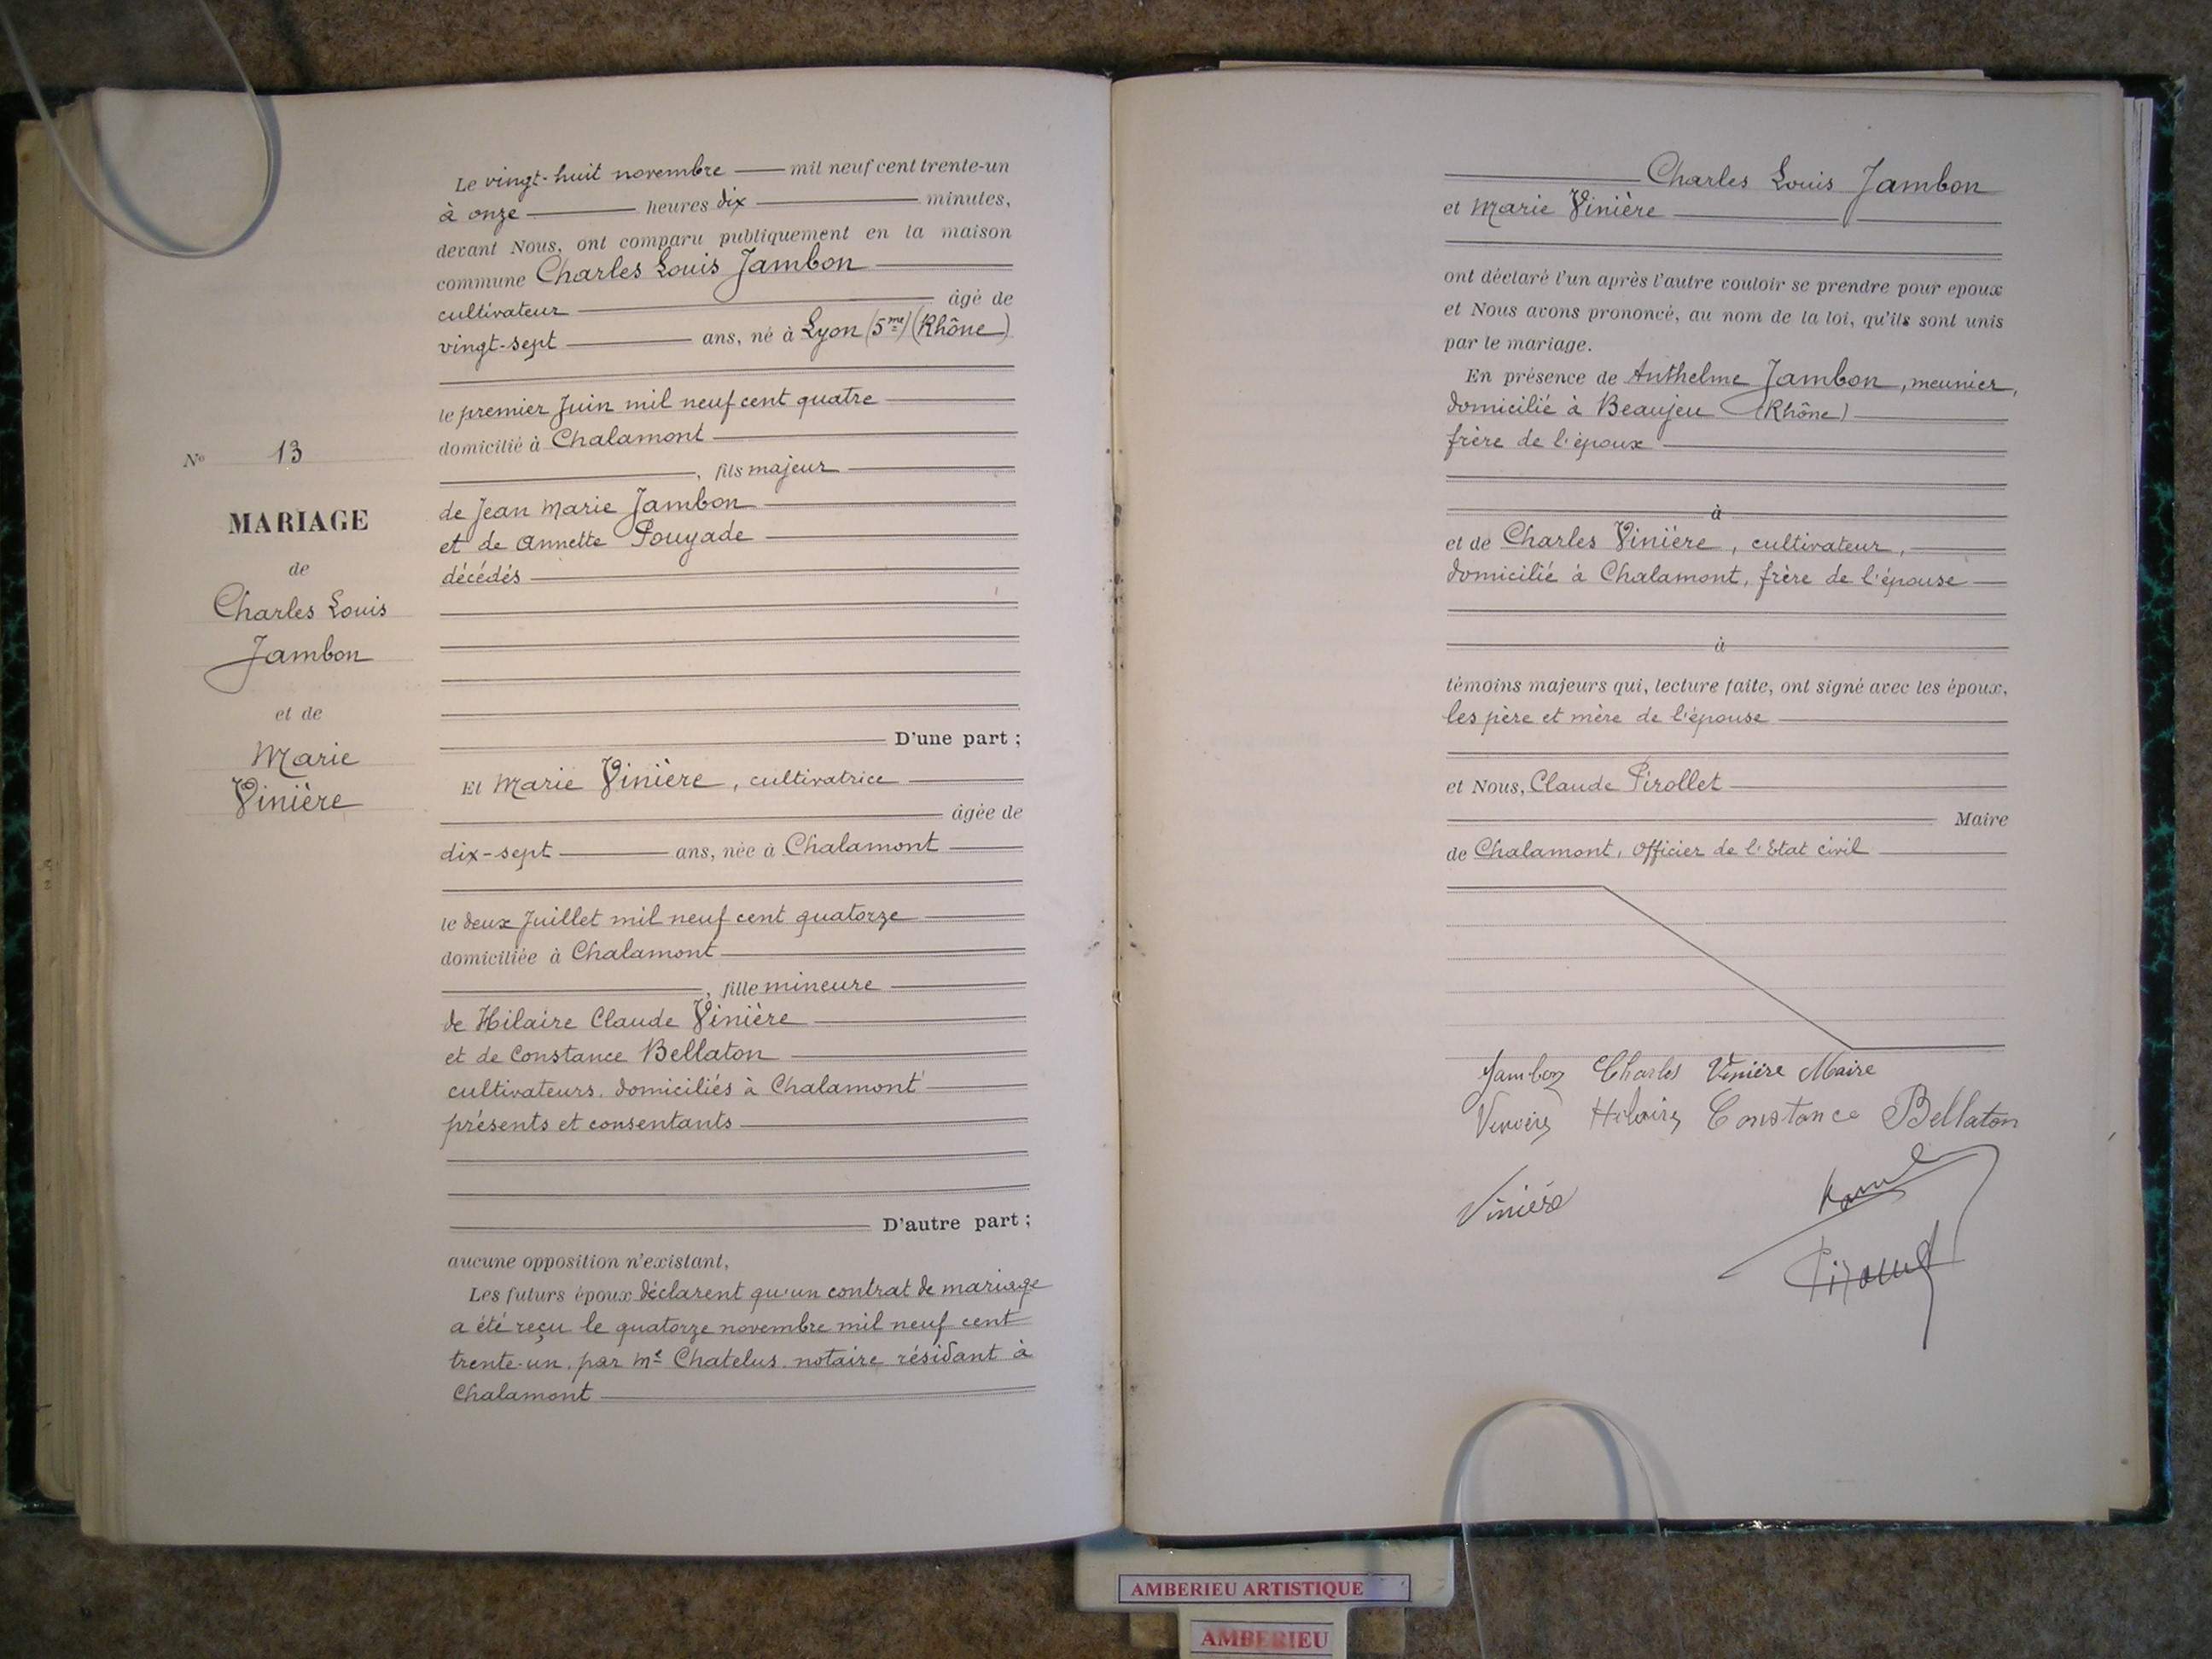 N° 13
MARIAGE
de
Charles Louis
Jambon
et de
Marie
Vinière
Le vingt-huit novembre mil neuf cent trente-un
à onze heures dix minutes,
devant Nous, ont comparu publiquement en la maison
commune Charles Louis Jambon
cultivateur âgé de
vingt-sept ans, né à Lyon (5me) (Rhône)
le premier Juin mil neuf cent quatre
domicilié à Chalamont
, fils majeur
de Jean Marie Jambon
et de Annette Pouyade
décédés
D'une part ;
Et Marie Vinière, cultivatrice
âgée de
dix-sept ans, née à Chalamont
le deux Juillet mil neuf cent quatorze
domiciliée à Chalamont
, fille mineure
de Hilaire Claude Vinière
et de Constance Bellaton
cultivateurs, domiciliés à Chalamont
présents et consentants
D'autre part ;
aucune opposition n'existant,
Les futurs époux déclarent qu'un contrat de mariage
a été reçu le quatorze novembre mil neuf cent
trente-un, par Me Chatelus, notaire résidant à
Chalamont
Charles Louis Jambon
et Marie Vinière
ont déclaré l'un après l'autre vouloir se prendre pour epoux
et Nous avons prononcé, au nom de la loi, qu'ils sont unis
par le mariage.
En présence de Anthelme Jambon, meunier,
domicilié à Beaujeu (Rhône)
frère de l'époux
à
et de Charles Vinière, cultivateur,
domicilié à Chalamont, frère de l'épouse
à
témoins majeurs qui, lecture faite, ont signé avec les époux,
les père et mère de l'épouse
et Nous, Claude Pirollet
Maire
de Chalamont, Officier de l'Etat civil
Jambon Charles Vinière Maire
Hilaire Constance Bellaton
Vinière
AMBERIEU ARTISTIQUE
AMBERIEU